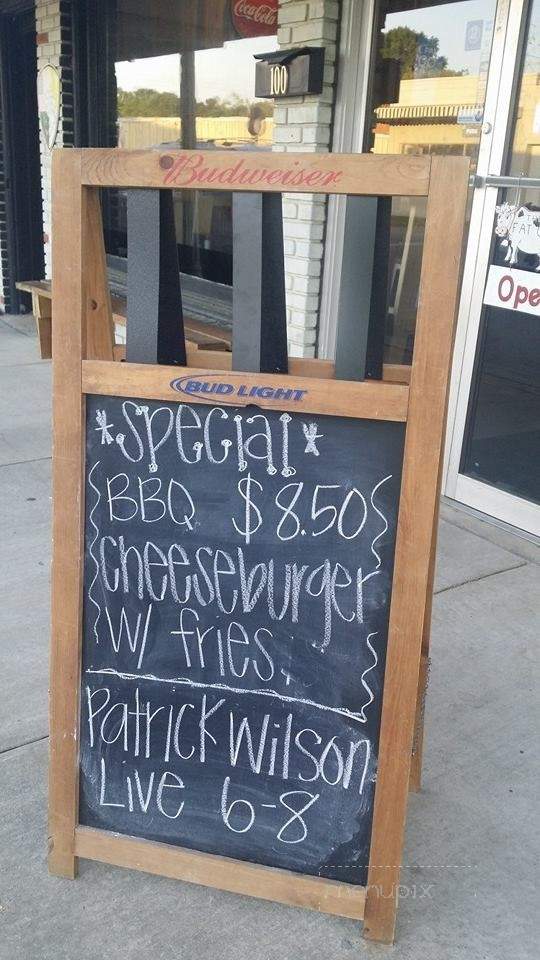 Coca-Cola
100
Budweiser
FAT
Ope
BUD LIGHT
*Special*
BBQ $8.50
Cheeseburger
w/ fries.
Patrick Wilson
Live 6-8
menupix